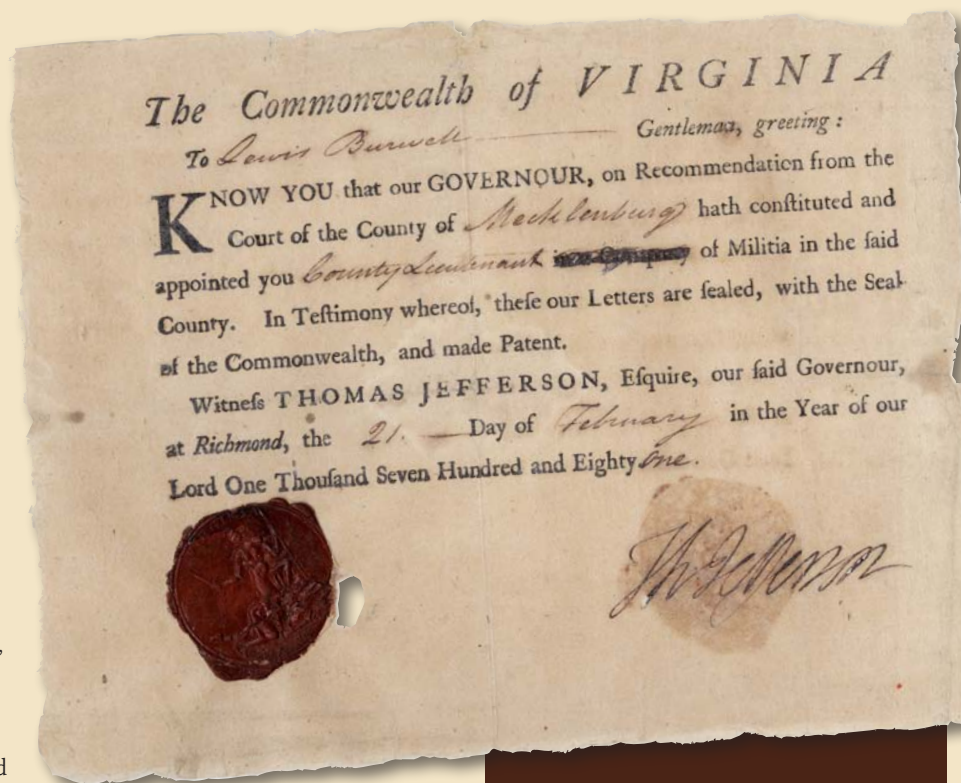 The Commonwealth of VIRGINIA
To Lewis Burwell Gentleman, greeting:
KNOW YOU that our GOVERNOUR, on Recommendation from the
Court of the County of Mecklenburg hath conſtituted and
appointed you County Lieutenant of Militia in the ſaid
County. In Teſtimony whereof, theſe our Letters are ſealed, with the Seal
of the Commonwealth, and made Patent.
Witneſs THOMAS JEFFERSON, Eſquire, our ſaid Governour,
at Richmond, the 21. Day of February in the Year of our
Lord One Thouſand Seven Hundred and Eighty one.
Th Jefferson